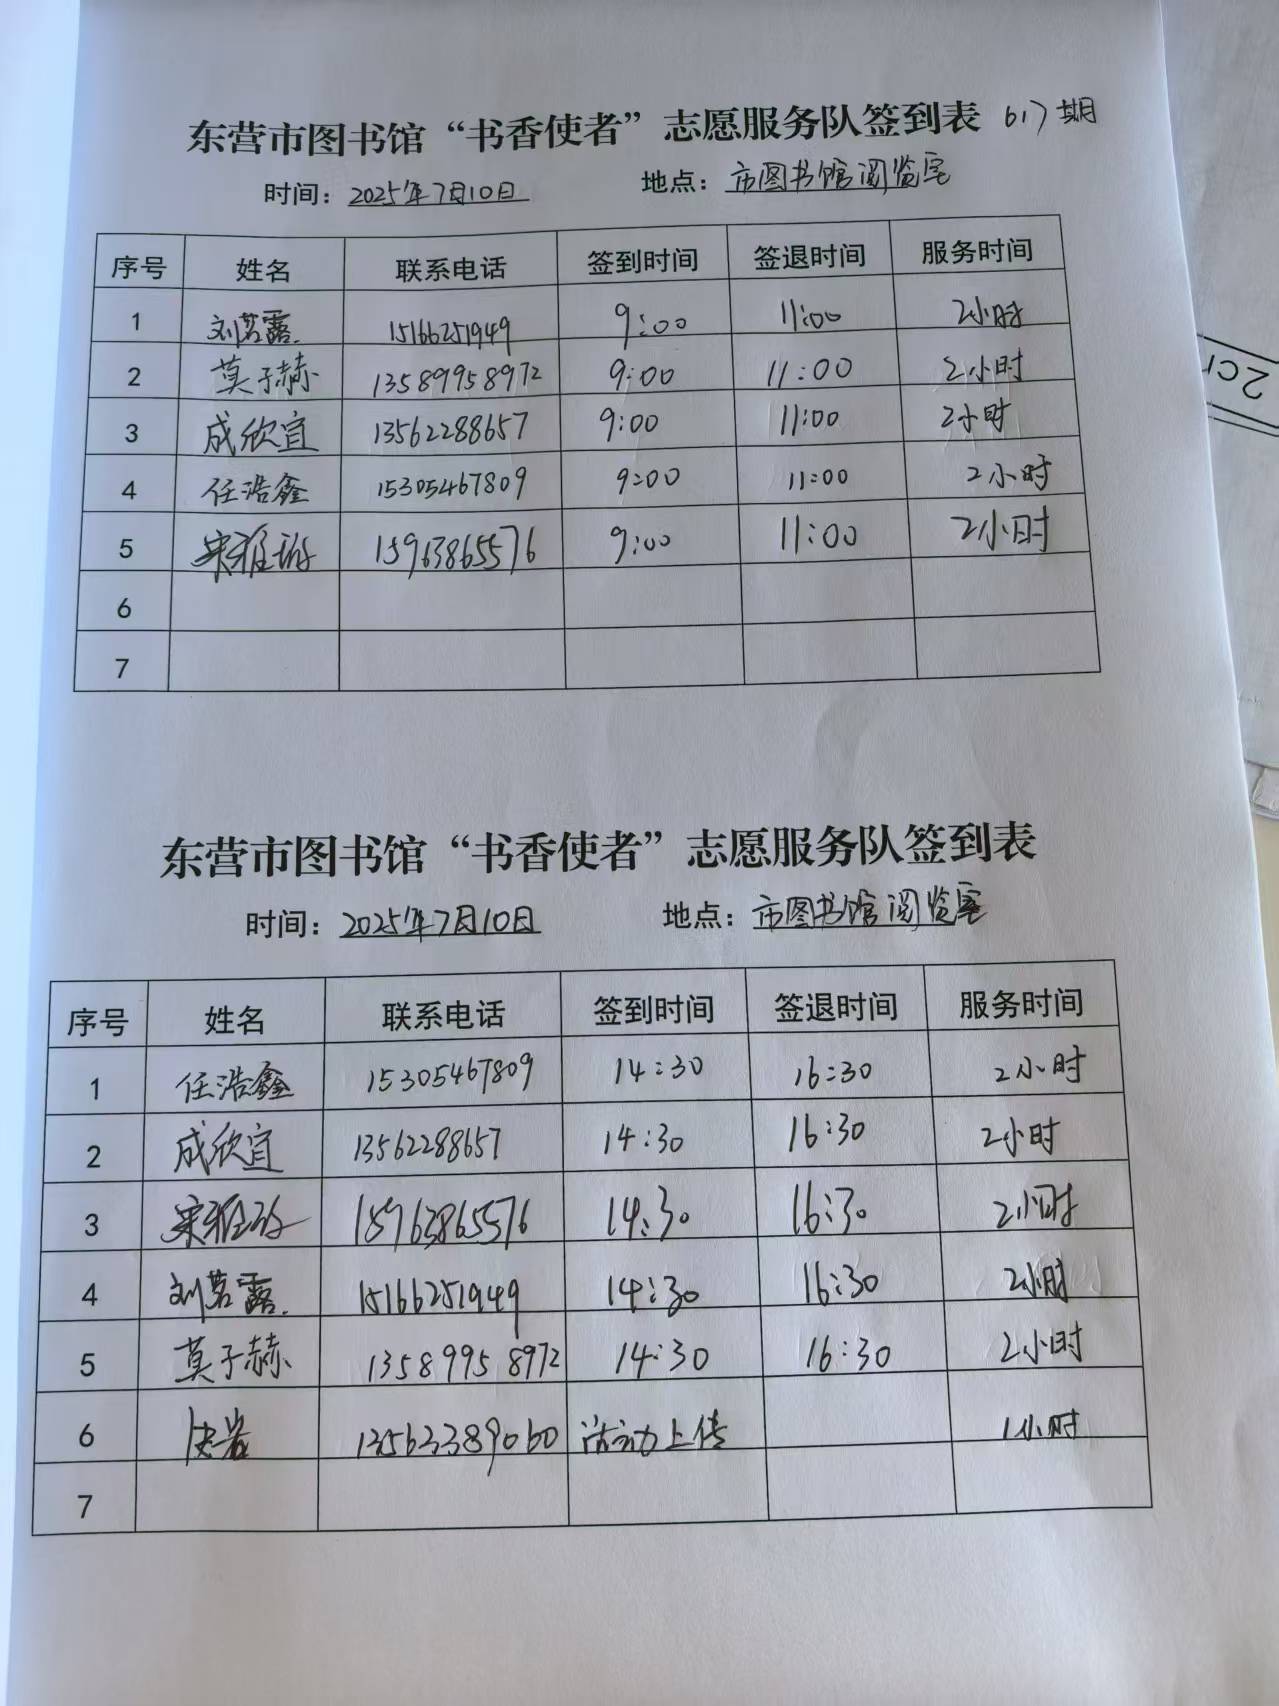 东营市图书馆“书香使者”志愿服务队签到表 617期
时间：2025年7月10日 地点：市图书馆阅览室
序号 姓名 联系电话 签到时间 签退时间 服务时间
1 刘茗露 15166251949 9:00 11:00 2小时
2 莫子赫 13589958972 9:00 11:00 2小时
3 成欣宜 13562288657 9:00 11:00 2小时
4 任浩鑫 15305467809 9:00 11:00 2小时
5 宋雅 15963865576 9:00 11:00 2小时
6
7
东营市图书馆“书香使者”志愿服务队签到表
时间：2025年7月10日 地点：市图书馆阅览室
序号 姓名 联系电话 签到时间 签退时间 服务时间
1 任浩鑫 15305467809 14:30 16:30 2小时
2 成欣宜 13562288657 14:30 16:30 2小时
3 宋雅 15963865576 14:30 16:30 2小时
4 刘茗露 15166251949 14:30 16:30 2小时
5 莫子赫 13589958972 14:30 16:30 2小时
6 13563389060 活动上传 1小时
7